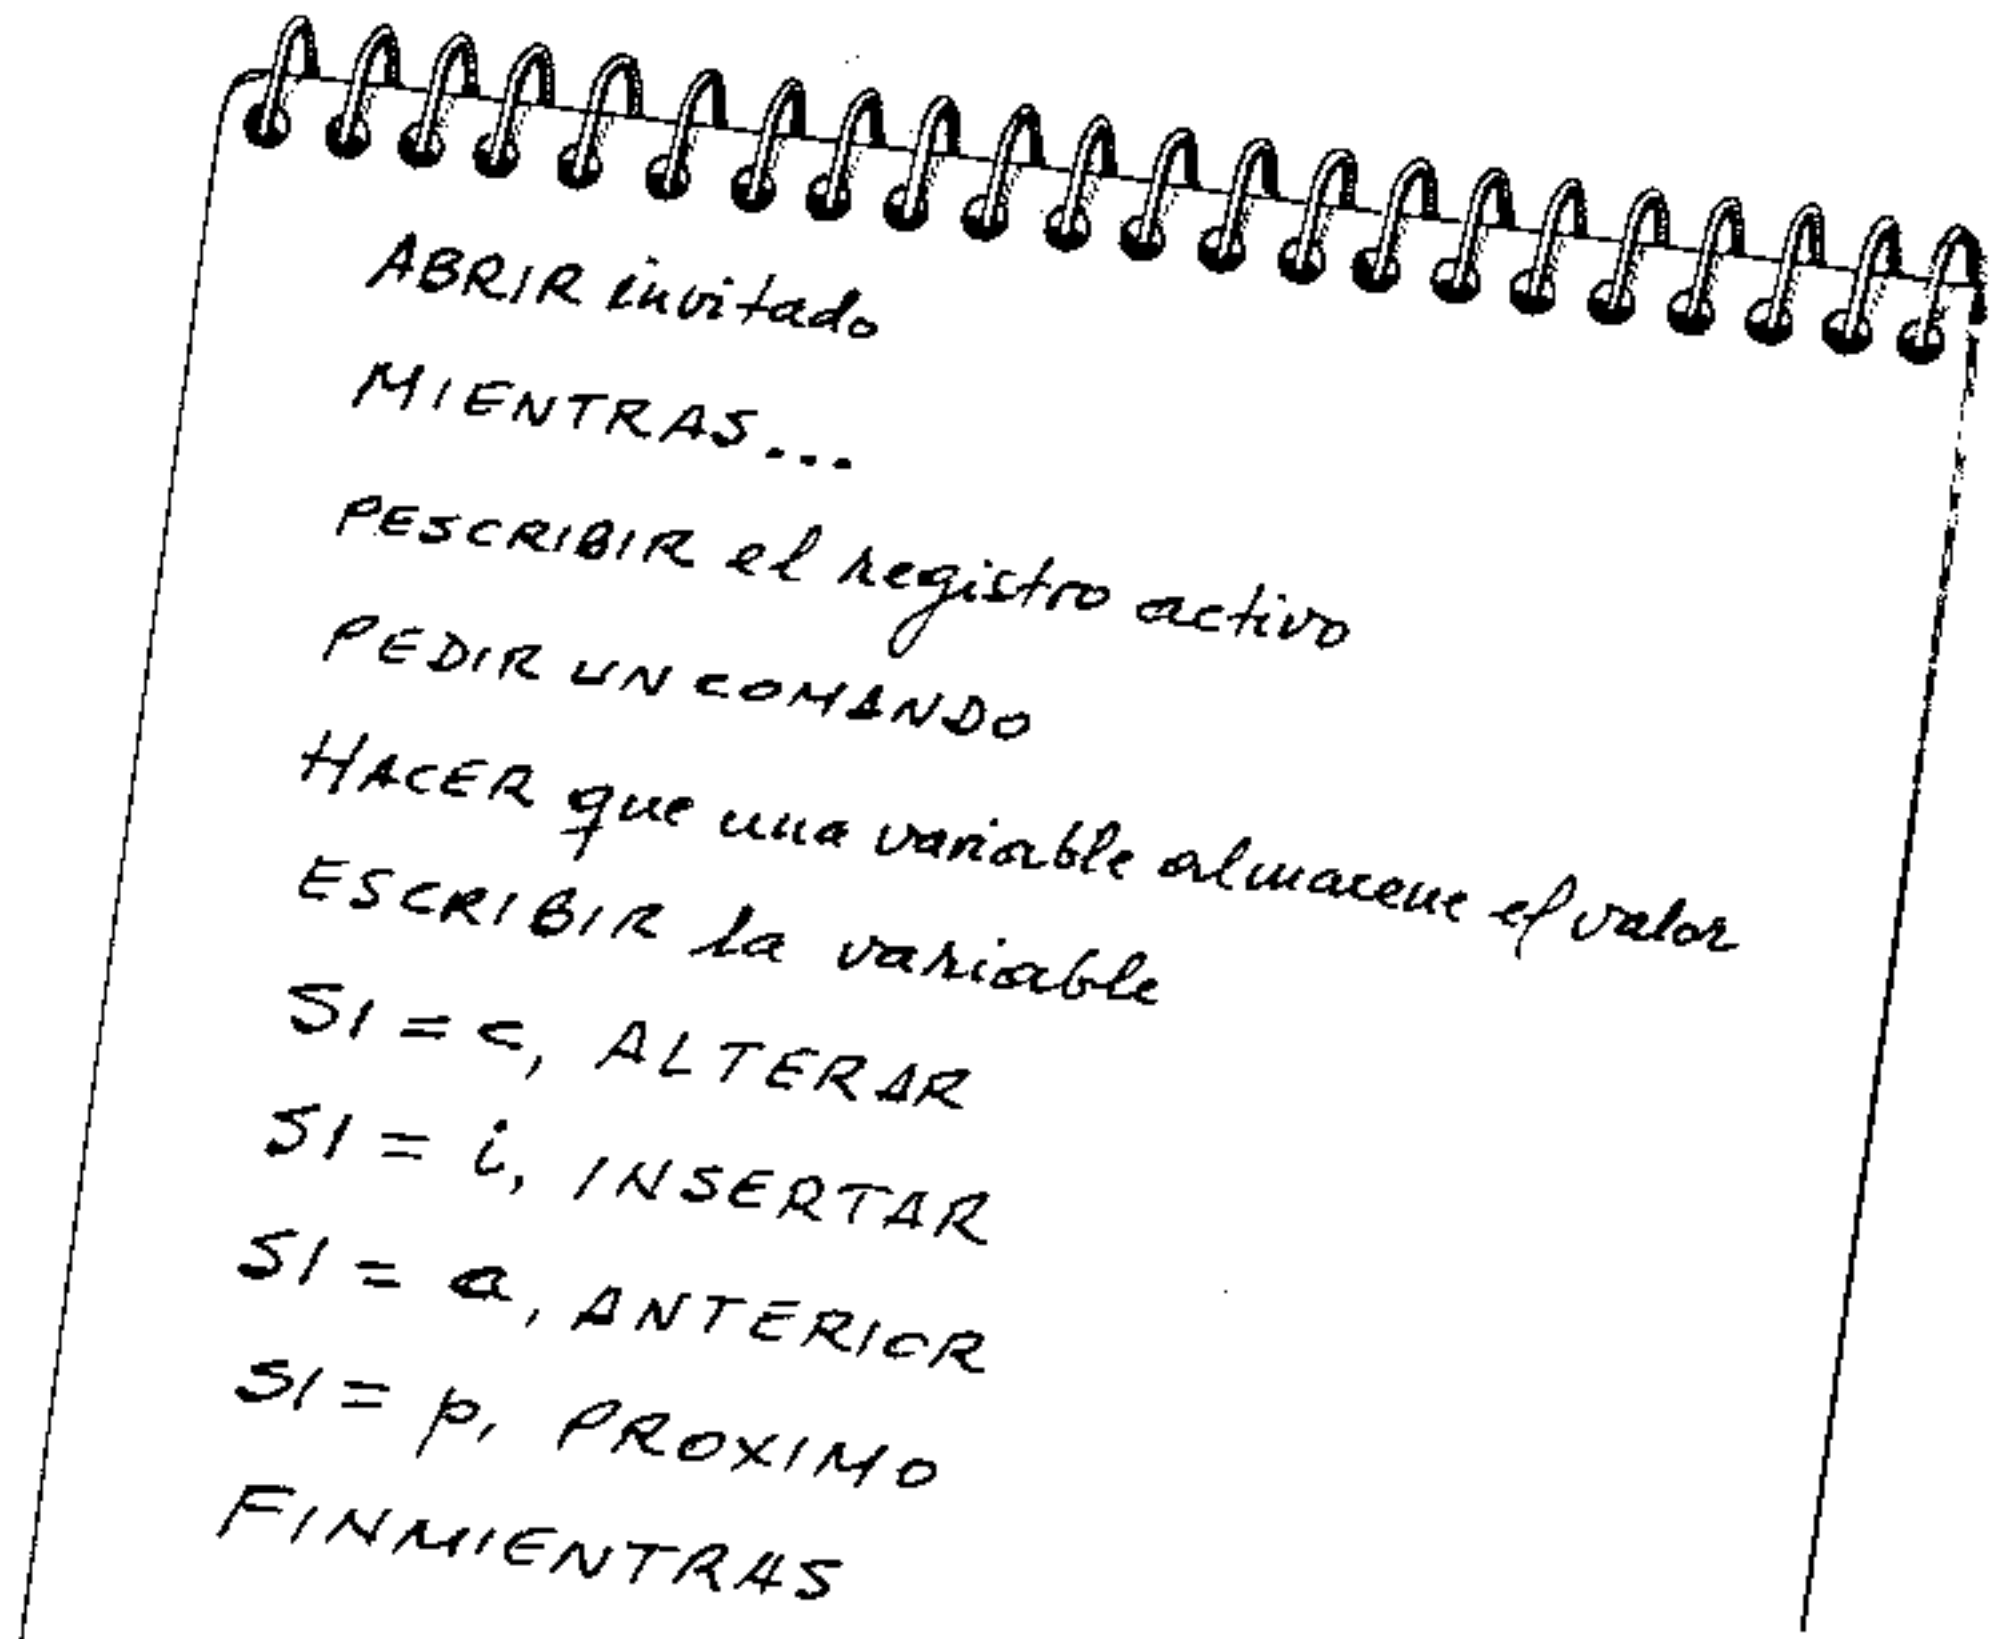 ABRIR invitado
MIENTRAS...
PESCRIBIR el registro activo
PEDIR UN COMANDO
HACER que una variable almacene el valor
ESCRIBIR la variable
SI = c, ALTERAR
SI = i, INSERTAR
SI = a, ANTERIOR
SI = p, PROXIMO
FINMIENTRAS